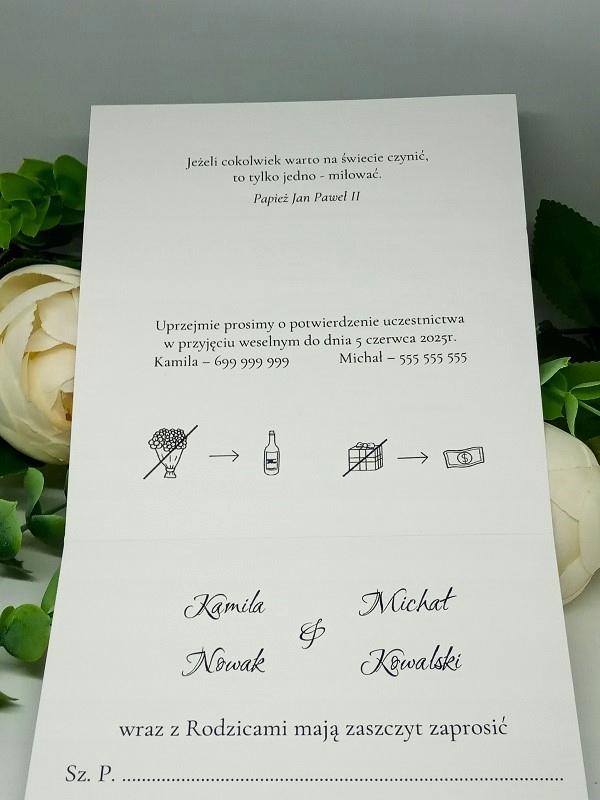 Jeżeli cokolwiek warto na świecie czynić,
to tylko jedno - miłować.
Papież Jan Paweł II
Uprzejmie prosimy o potwierdzenie uczestnictwa
w przyjęciu weselnym do dnia 5 czerwca 2025r.
Kamila – 699 999 999 Michał – 555 555 555
$
Kamila Michał
&
Nowak Kowalski
wraz z Rodzicami mają zaszczyt zaprosić
Sz. P. ........................................................................